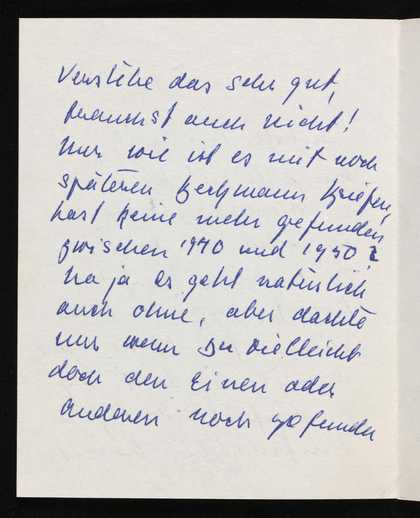 Verstehe das sehr gut,
brauchst auch nicht!
Nur wie ist es mit noch
späteren Beckmann Briefen,
hast keine mehr gefunden
zwischen 1940 und 1950?
Na ja es geht natürlich
auch ohne, aber dachte
nur wenn Du vielleicht
doch den Einen oder
Anderen noch gefunden